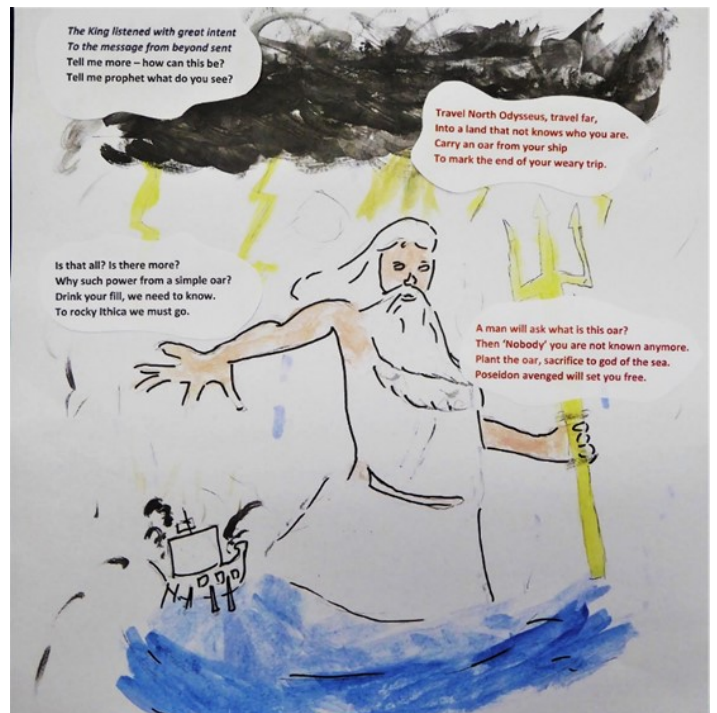 The King listened with great intent
To the message from beyond sent
Tell me more – how can this be?
Tell me prophet what do you see?
Travel North Odysseus, travel far,
Into a land that not knows who you are.
Carry an oar from your ship
To mark the end of your weary trip.
Is that all? Is there more?
Why such power from a simple oar?
Drink your fill, we need to know.
To rocky Ithica we must go.
A man will ask what is this oar?
Then ‘Nobody’ you are not known anymore.
Plant the oar, sacrifice to god of the sea.
Poseidon avenged will set you free.